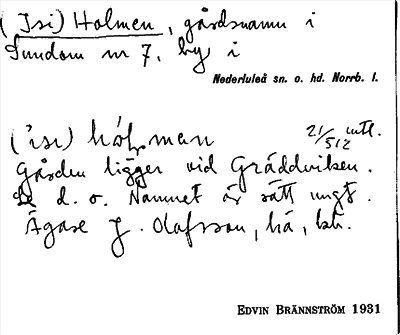 (Isi) Holmen, gårdsnamn i
Sundom nr 7, by i
Nederluleå sn. o. hd. Norrb. l.
('isi) hólman 21/512 utt.
Gården ligger vid Gräddviken.
Se d. o. Namnet är rätt ungt.
Ägare J. Olafsson, här, bti.
EDVIN BRÄNNSTRÖM 1931